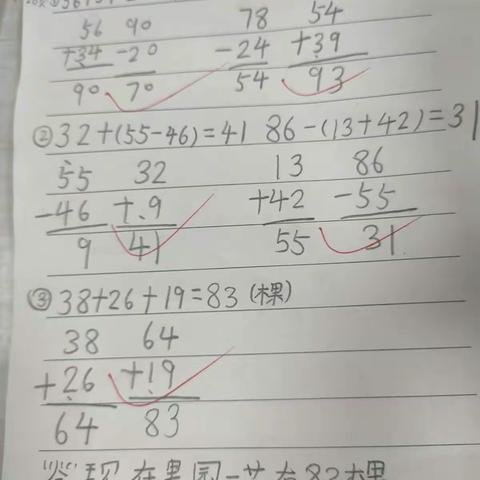 56 90 78 54
+34 -20 -24 +39
90 70 54 93
②32+(55-46)=41 86-(13+42)=31
55 32 13 86
-46 +9 +42 -55
9 41 55 31
③38+26+19=83(棵)
38 64
+26 +19
64 83
答:现在果园一共有83棵